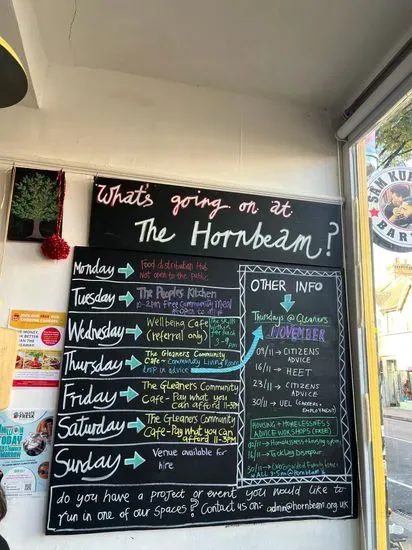 What's going on at
The Hornbeam?
Monday → Food distribution Hub
Not open to the public
Tuesday → The Peoples Kitchen
10-2pm Free Community Meal
Wednesday → Wellbeing Cafe
(referral only)
3-9pm
Thursday → The Gleaners Community
Cafe - Community Living Room
drop in advice
Friday → The Gleaners Community
Cafe - Pay what you
can afford 11-3pm
Saturday → The Gleaners Community
Cafe - Pay what you
can afford 11-3pm
Sunday → Venue available for
hire
OTHER INFO
Thursdays @ Gleaners
NOVEMBER
09/11 → CITIZENS
ADVICE
16/11 → HEET
23/11 → CITIZENS
ADVICE
30/11 → UEL (CAREERS +
EMPLOYMENT)
HOUSING + HOMELESSNESS
ADVICE WORKSHOPS (FREE)
→ Homelessness + Housing options
16/11 → Tackling Disrepair
30/11 →
ALL 3-5pm @ Hornbeam
do you have a project or event you would like to
run in one of our spaces? Contact us on:- admin@hornbeam.org.uk
SAM
BAR
TODAY